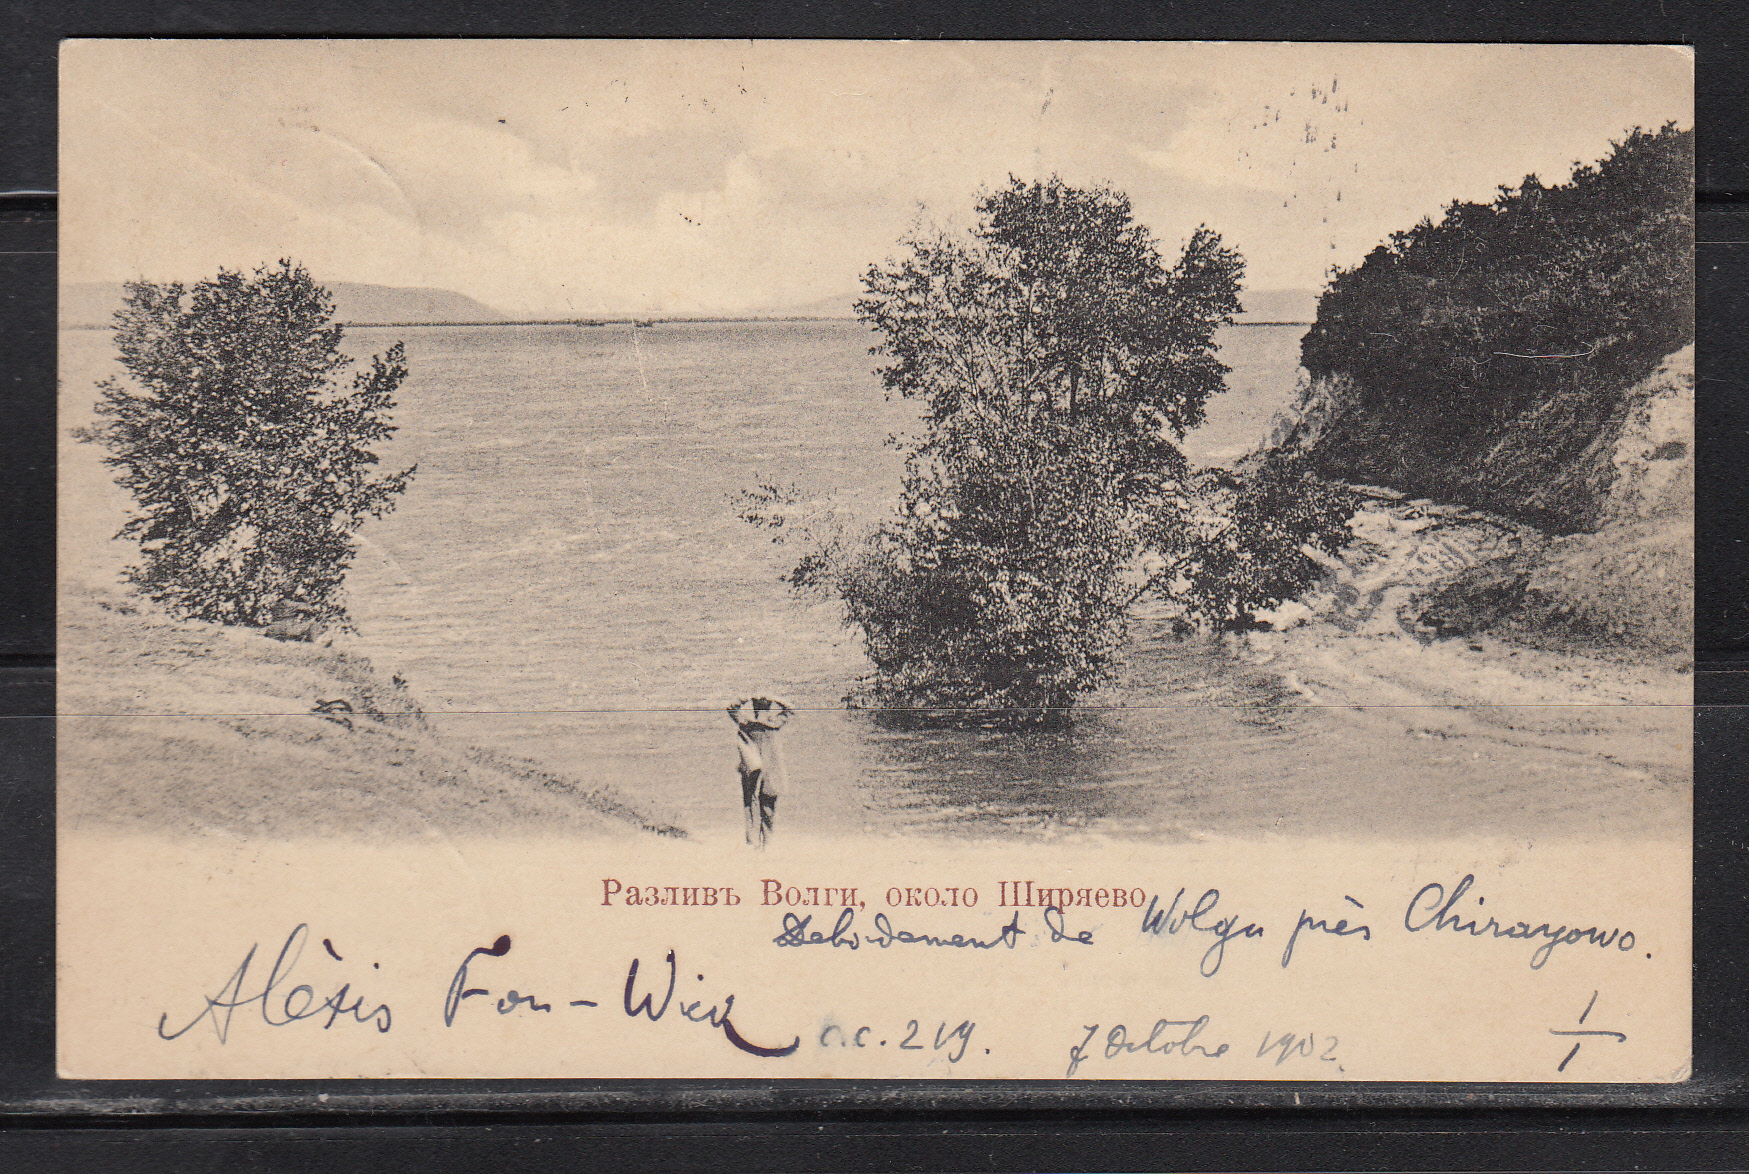 Разливъ Волги, около Ширяево.
Debordement de Wolga près Chirayowo.
Alèxis Fon-Wick c.c. 219. 7 Octobre 1902. 1/1